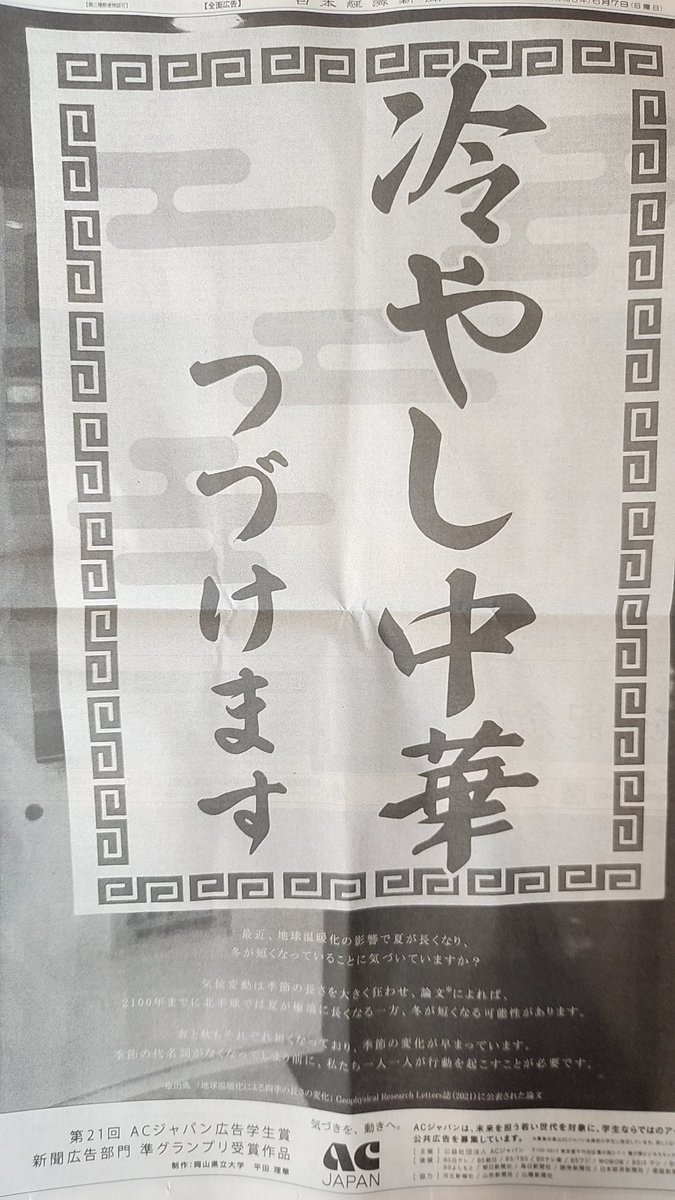 【第三種郵便物認可】
【全面広告】
日本経済新聞
6月7日(日曜日)
冷やし中華
つづけます
最近、地球温暖化の影響で夏が長くなり、
冬が短くなっていることに気づいていますか？
気候変動は季節の長さを大きく狂わせ、論文※によれば、
2100年までに北半球では夏が極端に長くなる一方、冬が短くなる可能性があります。
春と秋もそれぞれ短くなっており、季節の変化が早まっています。
季節の代名詞がなくなってしまう前に、私たち一人一人が行動を起こすことが必要です。
※出典 「地球温暖化による四季の長さの変化」Geophysical Research Letters誌 (2021)に公表された論文
第21回 ACジャパン広告学生賞
新聞広告部門 準グランプリ受賞作品
制作：岡山県立大学 平田 理華
気づきを、動きへ。
AC
JAPAN
ACジャパンは、未来を担う若い世代を対象に、学生ならではのア
公共広告を募集しています。
［主催］ 公益社団法人 ACジャパン
［後援］
［協力］